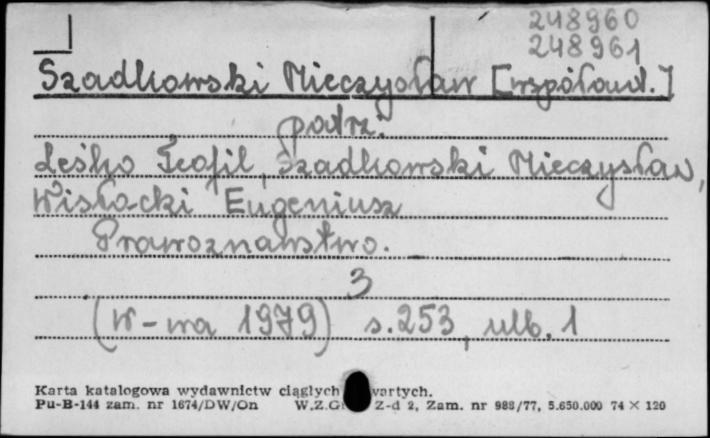 248960
248961
Szadkowski Mieczysław [współaut.]
patrz:
Leśko Teofil, Szadkowski Mieczysław,
Wisłocki Eugeniusz
Prawoznawstwo.
3
(W-wa 1979) s.253, nlb. 1
Karta katalogowa wydawnictw ciągłych
Pu-B-144 zam. nr 1674/DW/On W.Z.G Z-d 2, Zam. nr 988/77, 5.650.000 74 × 120